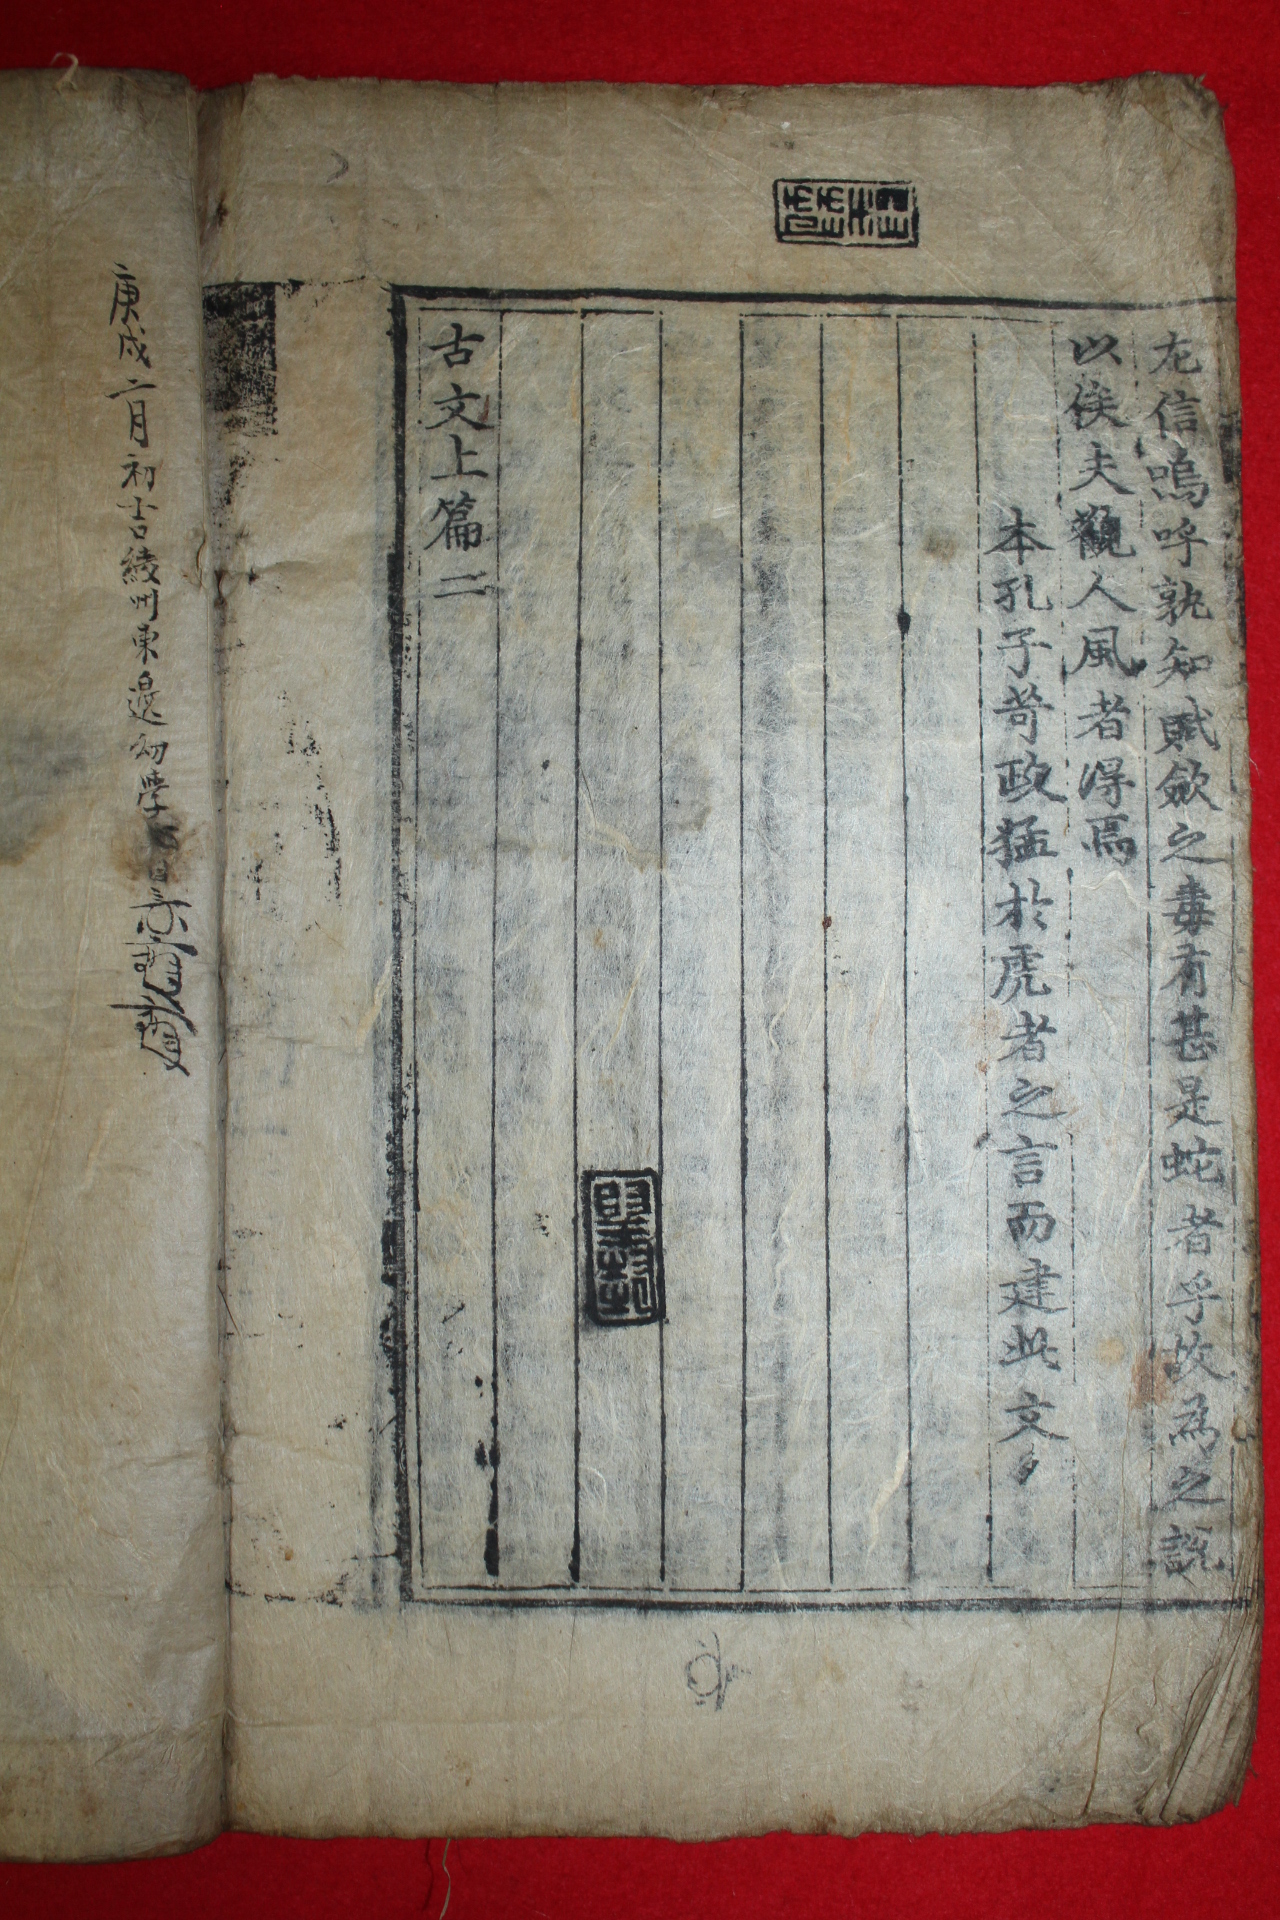 尤信嗚呼孰知賦斂之毒有甚是蛇者乎故為之說
以俟夫觀人風者得焉
本孔子苛政猛於虎者之言而建此文
古文上篇二
庚戌二月初吉綾州東邊幼學